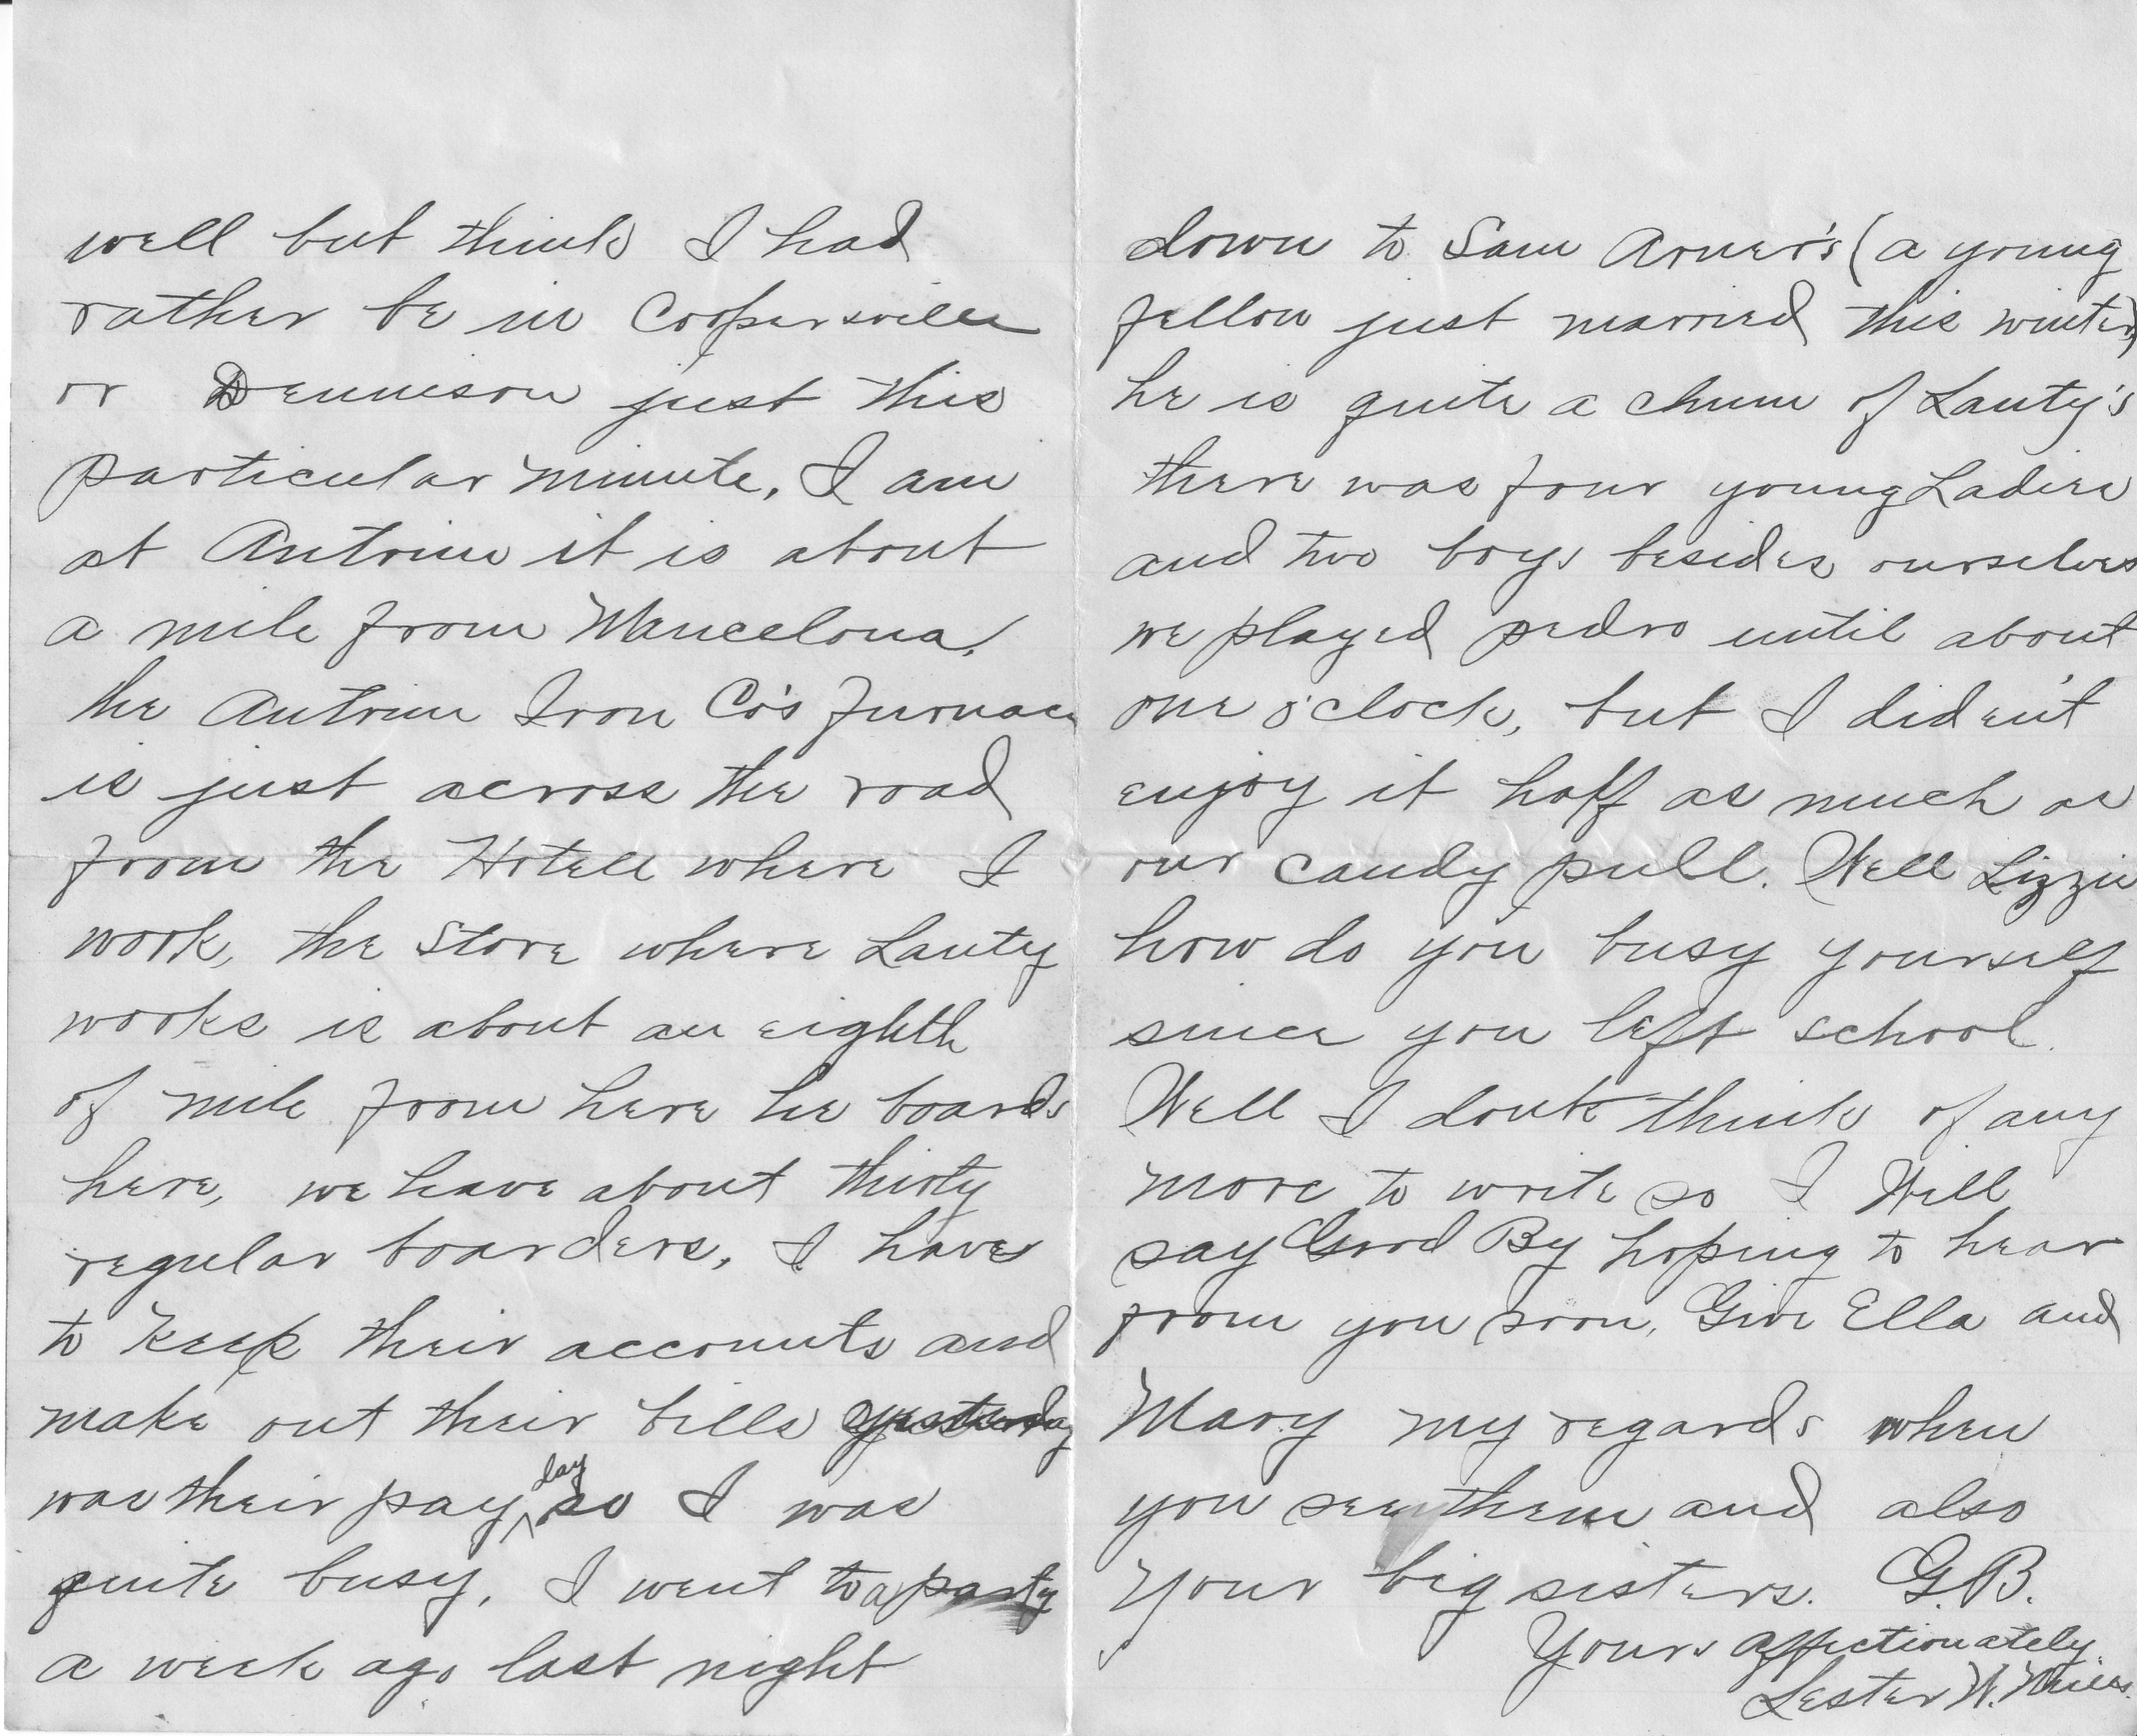 well but think I had
rather be in Coopersville
or Dennison just this
particular minute, I am
at Antrim it is about
a mile from Mancelona,
the Antrim Iron Co's Furnace
is just across the road
from the Hotell where I
work, the store where Lanty
works is about an eighth
of mile from here he boards
here, we have about thirty
regular boarders, I have
to keep their accounts and
make out their bills yesterday
was their pay day so I was
quite busy, I went to a party
a week ago last night
down to Sam Arner's (a young
fellow just married this winter)
he is quite a chum of Lanty's
there was four young Ladies
and two boys besides ourselves
we played pedro until about
one o'clock, but I did'ent
enjoy it half as much as
our candy pull. Well Lizzie
how do you busy yourself
since you left school.
Well I dont think of any
more to write so I Will
say Good By hoping to hear
from you soon, Give Ella and
Mary my regards when
you see them and also
your big sisters. G.B.
Yours affectionately
Lester W.